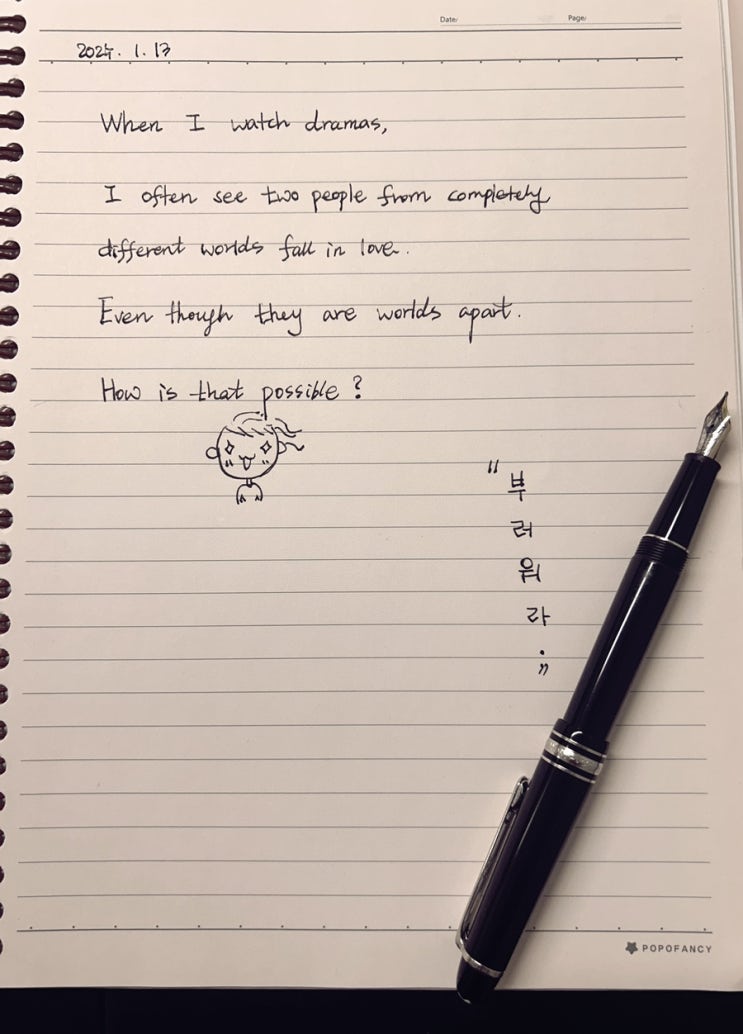 Date/ Page/
2025. 1. 13
When I watch dramas,
I often see two people from completely
different worlds fall in love.
Even though they are worlds apart.
How is that possible?
"부
러
워
라
."
POPOFANCY